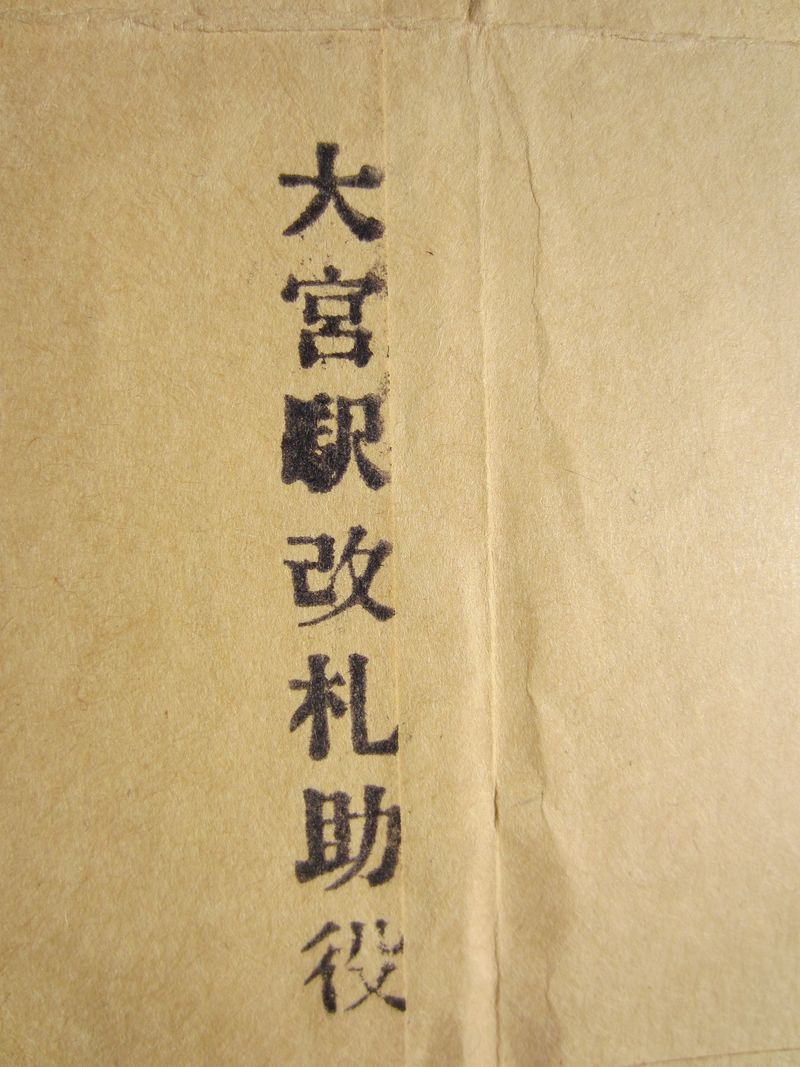 大宮駅改札助役